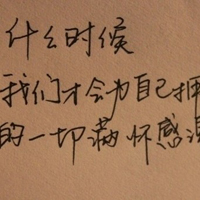 什么时候
我们才会为自己拥
的一切满怀感